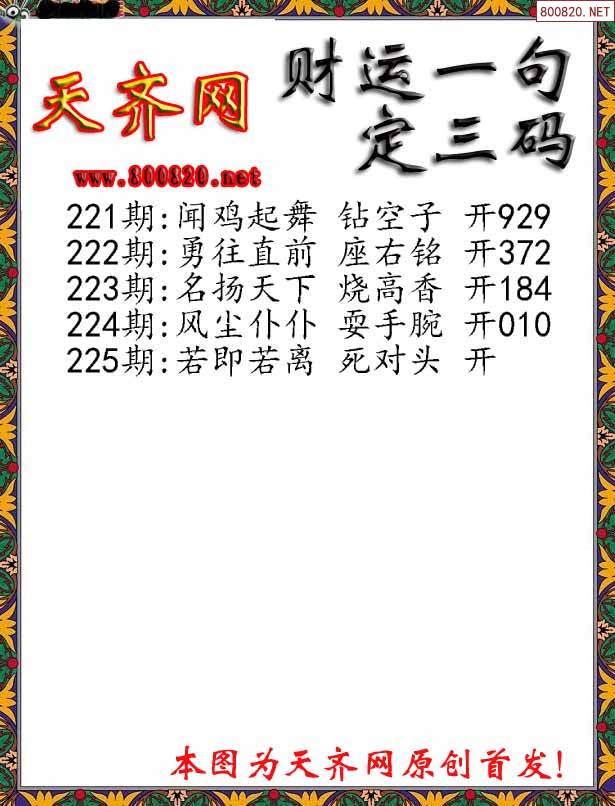 800820.NET
天齐网
财运一句
定三码
www.800820.net
221期:闻鸡起舞 钻空子 开929
222期:勇往直前 座右铭 开372
223期:名扬天下 烧高香 开184
224期:风尘仆仆 耍手腕 开010
225期:若即若离 死对头 开
本图为天齐网原创首发!